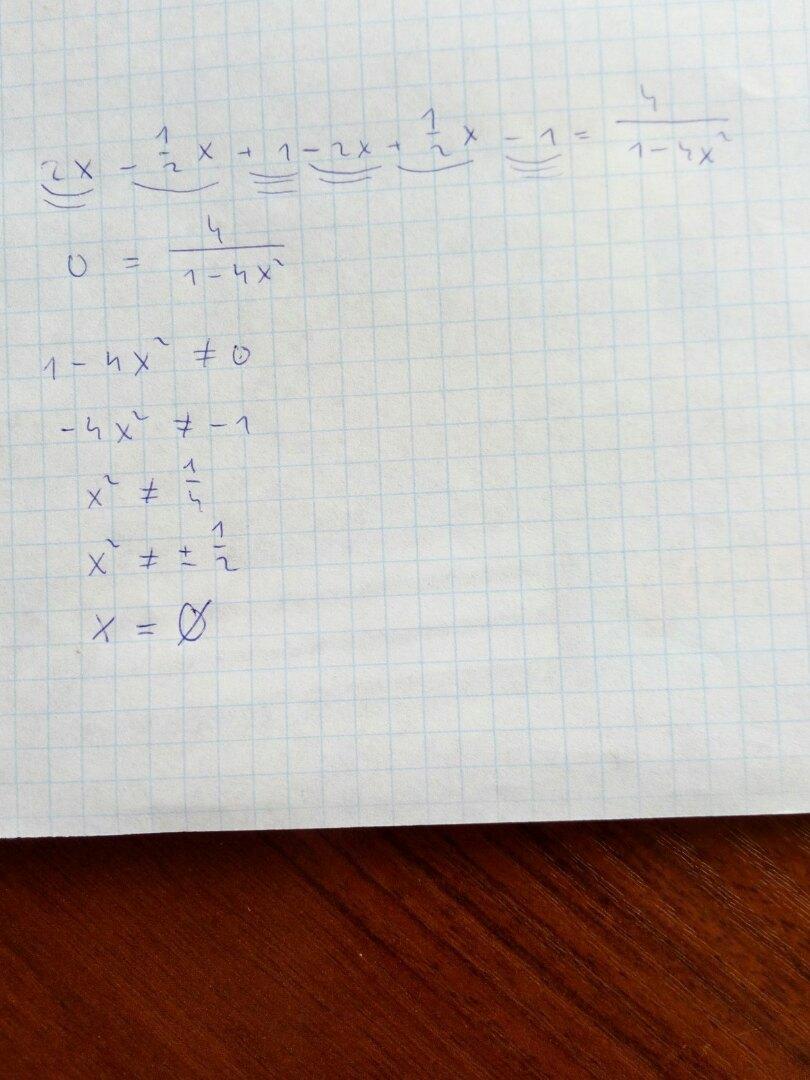 2x - 1/2 x + 1 - 2x + 1/2 x - 1 = 4/(1 - 4x²)
0 = 4/(1 - 4x²)
1 - 4x² ≠ 0
-4x² ≠ -1
x² ≠ 1/4
x² ≠ ± 1/2
x = ∅